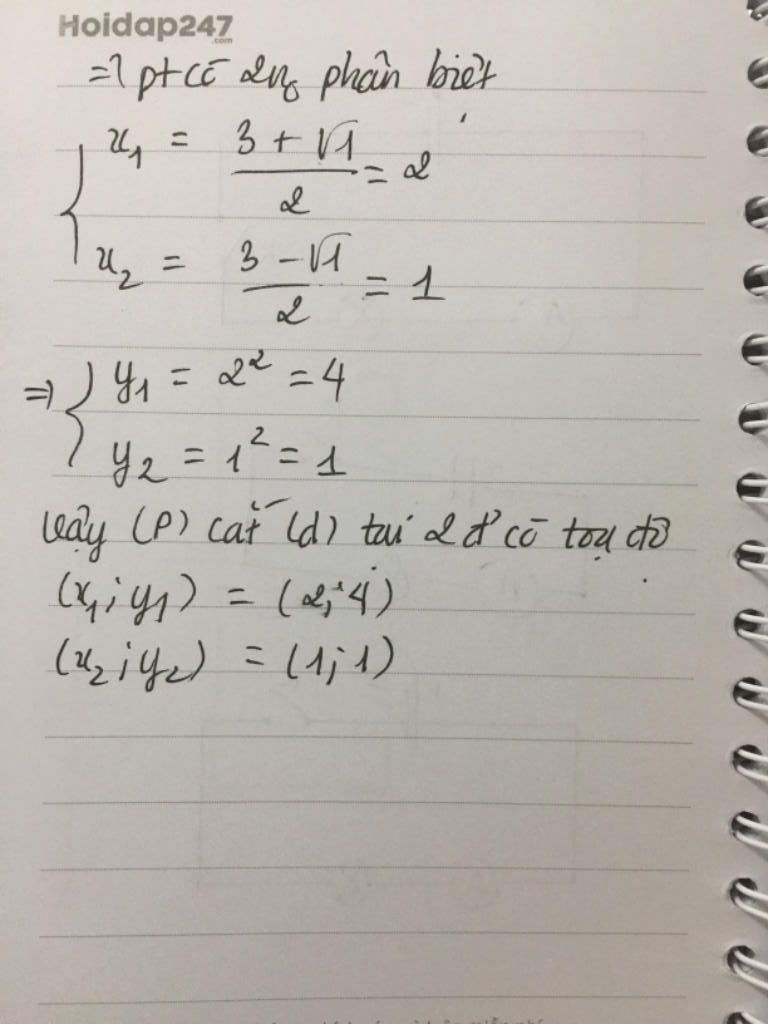 Hoidap247
.com
=> pt có 2 ng phân biệt
x₁ = (3 + √1)/2 = 2
x₂ = (3 - √1)/2 = 1
=> { y₁ = 2² = 4
y₂ = 1² = 1
Vậy (P) cắt (d) tại 2 đ' có toạ độ
(x₁; y₁) = (2; 4)
(x₂; y₂) = (1; 1)